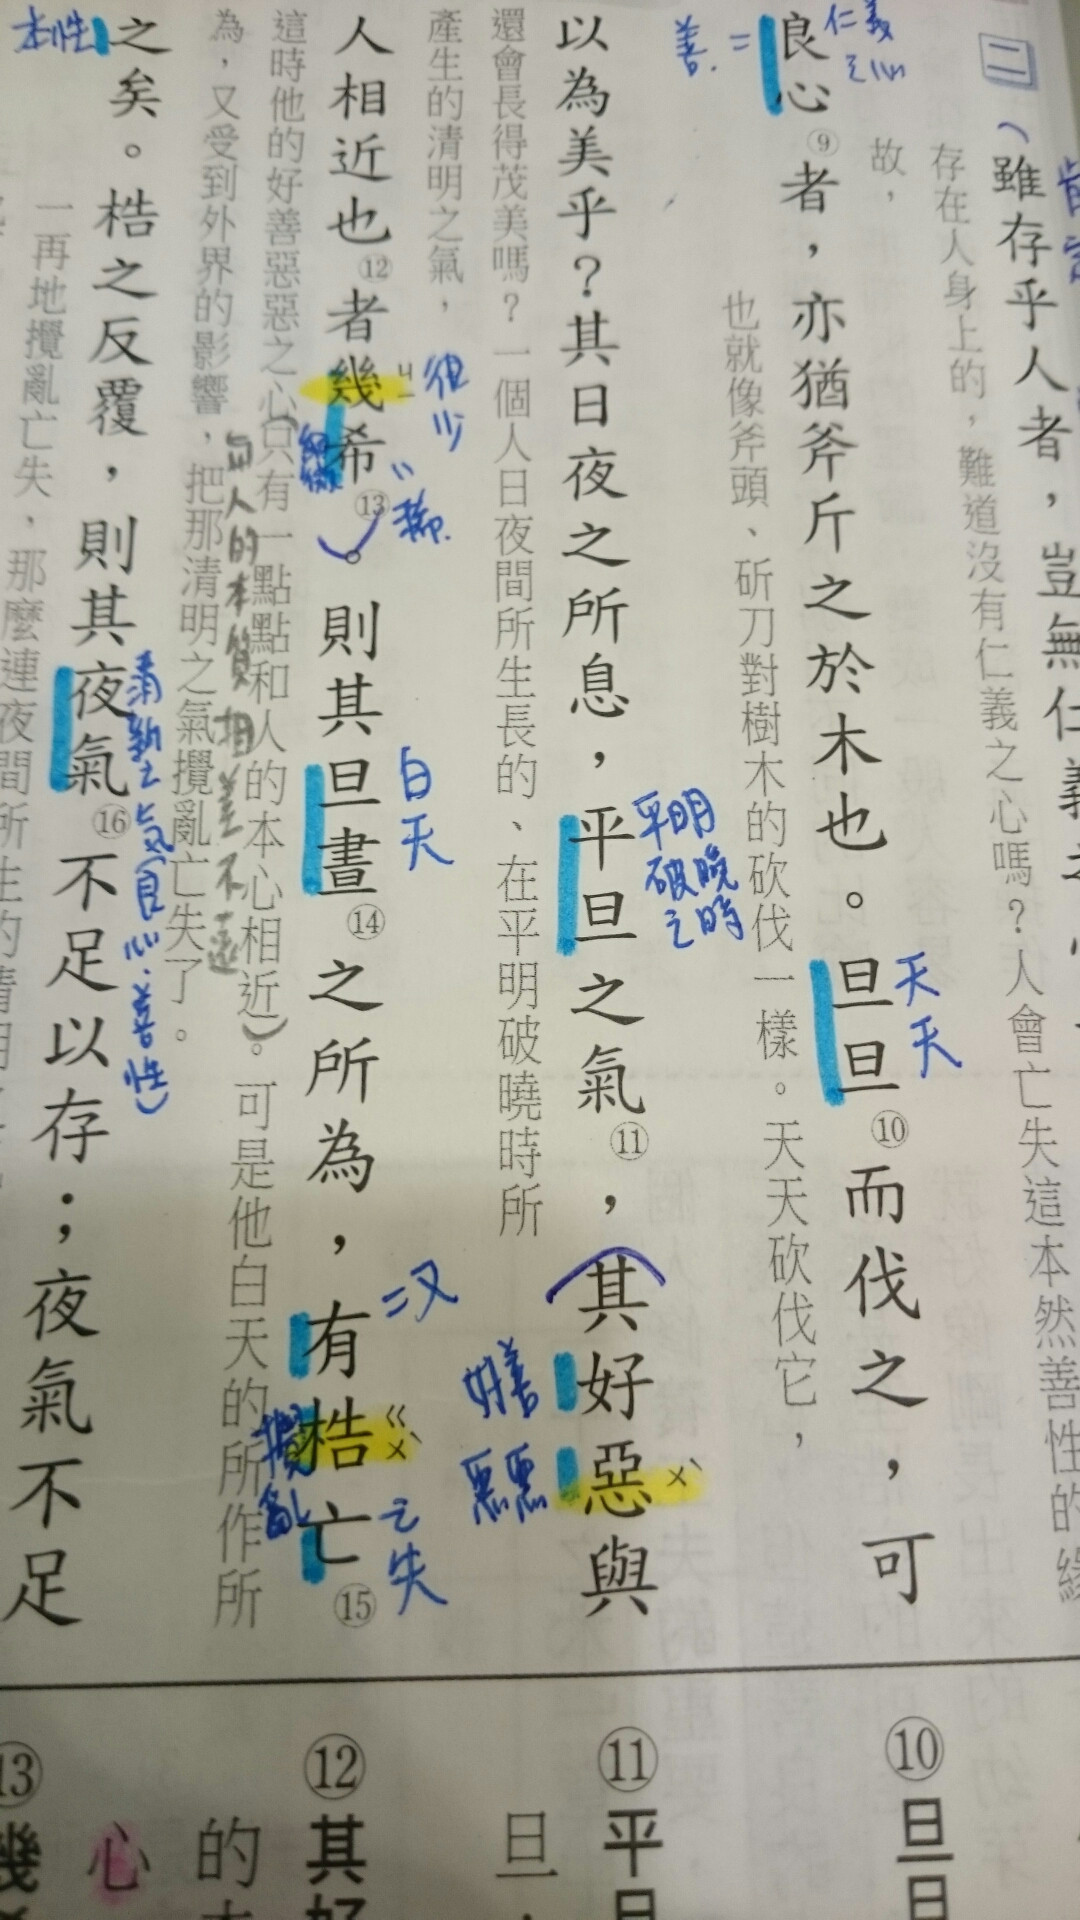 二
雖存乎人者，豈無仁義之心
存在人身上的，難道沒有仁義之心嗎？人會亡失這本然善性的緣
故，
仁義之心
良心⑨者，亦猶斧斤之於木也。旦旦⑩而伐之，可
善
天天
也就像斧頭、斫刀對樹木的砍伐一樣。天天砍伐它，
以為美乎？其日夜之所息，平旦之氣⑪，其好惡與
平明破晚之時
好善
惡惡
ㄨˋ
還會長得茂美嗎？一個人日夜間所生長的、在平明破曉時所
產生的清明之氣，
人相近也⑫者幾希⑬。則其旦晝⑭之所為，有梏亡⑮
ㄐㄧ
很少
稀
白天
=又
ㄍㄨˋ
攪亂
亡失
這時他的好善惡惡之心(只有一點點和人的本心相近)。可是他白天的所作所
與人的本質相差不遠
為，又受到外界的影響，把那清明之氣攪亂亡失了。
之矣。梏之反覆，則其夜氣⑯不足以存；夜氣不足
本性
清新之氣(良心、善性)
一再地攪亂亡失，那麼連夜間所生的清明
⑩旦旦
⑪平旦
旦
⑫其好
的本
心
⑬幾